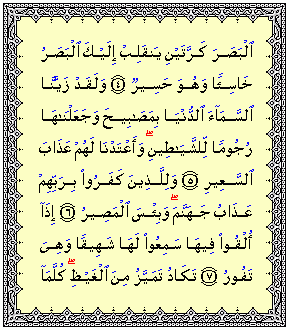 ٱلْبَصَرَ كَرَّتَيْنِ يَنقَلِبْ إِلَيْكَ ٱلْبَصَرُ
خَاسِئًا وَهُوَ حَسِيرٌ ۝٤ وَلَقَدْ زَيَّنَّا
ٱلسَّمَآءَ ٱلدُّنْيَا بِمَصَـٰبِيحَ وَجَعَلْنَـٰهَا
رُجُومًا لِّلشَّيَـٰطِينِ ۖ وَأَعْتَدْنَا لَهُمْ عَذَابَ
ٱلسَّعِيرِ ۝٥ وَلِلَّذِينَ كَفَرُوا۟ بِرَبِّهِمْ
عَذَابُ جَهَنَّمَ ۖ وَبِئْسَ ٱلْمَصِيرُ ۝٦ إِذَآ
أُلْقُوا۟ فِيهَا سَمِعُوا۟ لَهَا شَهِيقًا وَهِىَ
تَفُورُ ۝٧ تَكَادُ تَمَيَّزُ مِنَ ٱلْغَيْظِ ۖ كُلَّمَآ